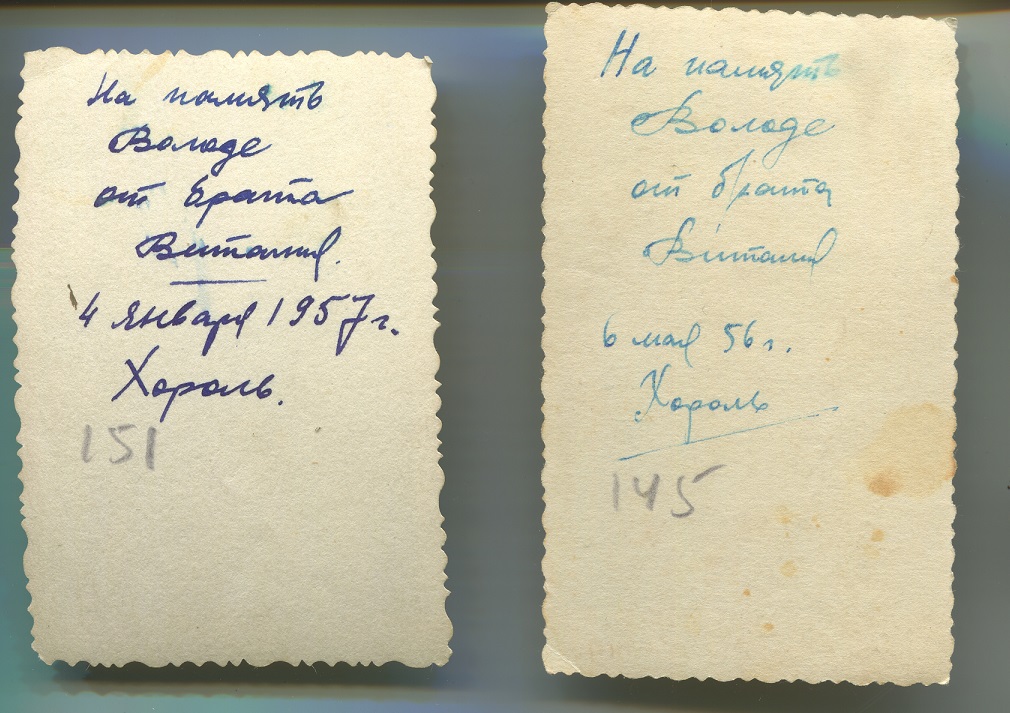 На память
Володе
от брата
Виталия.
4 января 1957 г.
Хороль.
151
На память
Володе
от брата
Виталия
6 мая 56 г.
Хороль
145